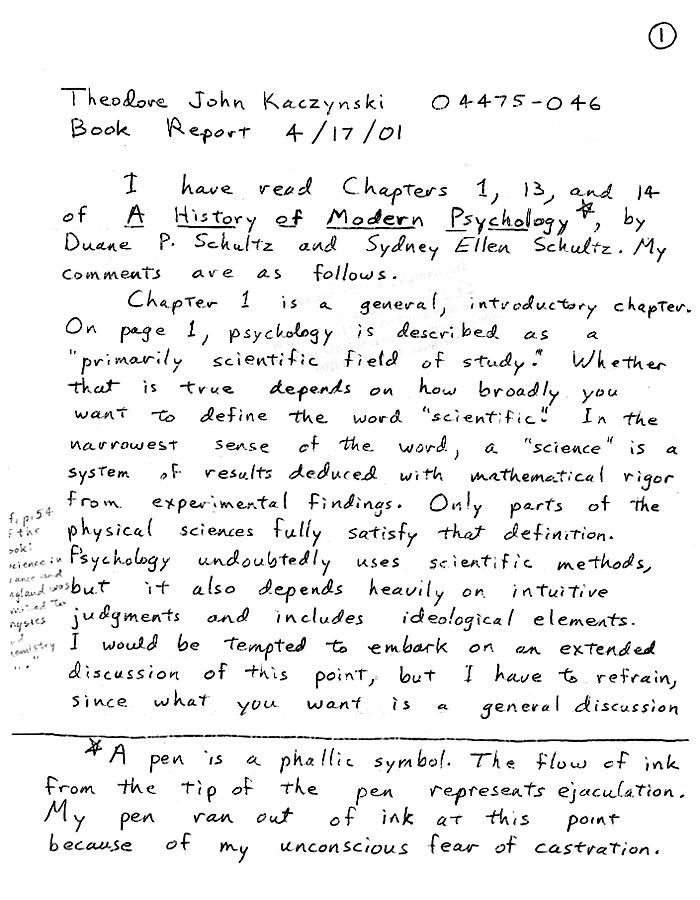 1
Theodore John Kaczynski 04475-046
Book Report 4/17/01
I have read Chapters 1, 13, and 14
of A History of Modern Psychology*, by
Duane P. Schultz and Sydney Ellen Schultz. My
comments are as follows.
Chapter 1 is a general, introductory chapter.
On page 1, psychology is described as a
"primarily scientific field of study." Whether
that is true depends on how broadly you
want to define the word "scientific." In the
narrowest sense of the word, a "science" is a
system of results deduced with mathematical rigor
from experimental findings. Only parts of the
physical sciences fully satisfy that definition.
Psychology undoubtedly uses scientific methods,
but it also depends heavily on intuitive
judgments and includes ideological elements.
I would be tempted to embark on an extended
discussion of this point, but I have to refrain,
since what you want is a general discussion
f. p. 54
the
ook:
cience in
rance and
ngland was
mited to
hysics
nd
hemistry
* A pen is a phallic symbol. The flow of ink
from the tip of the pen represents ejaculation.
My pen ran out of ink at this point
because of my unconscious fear of castration.